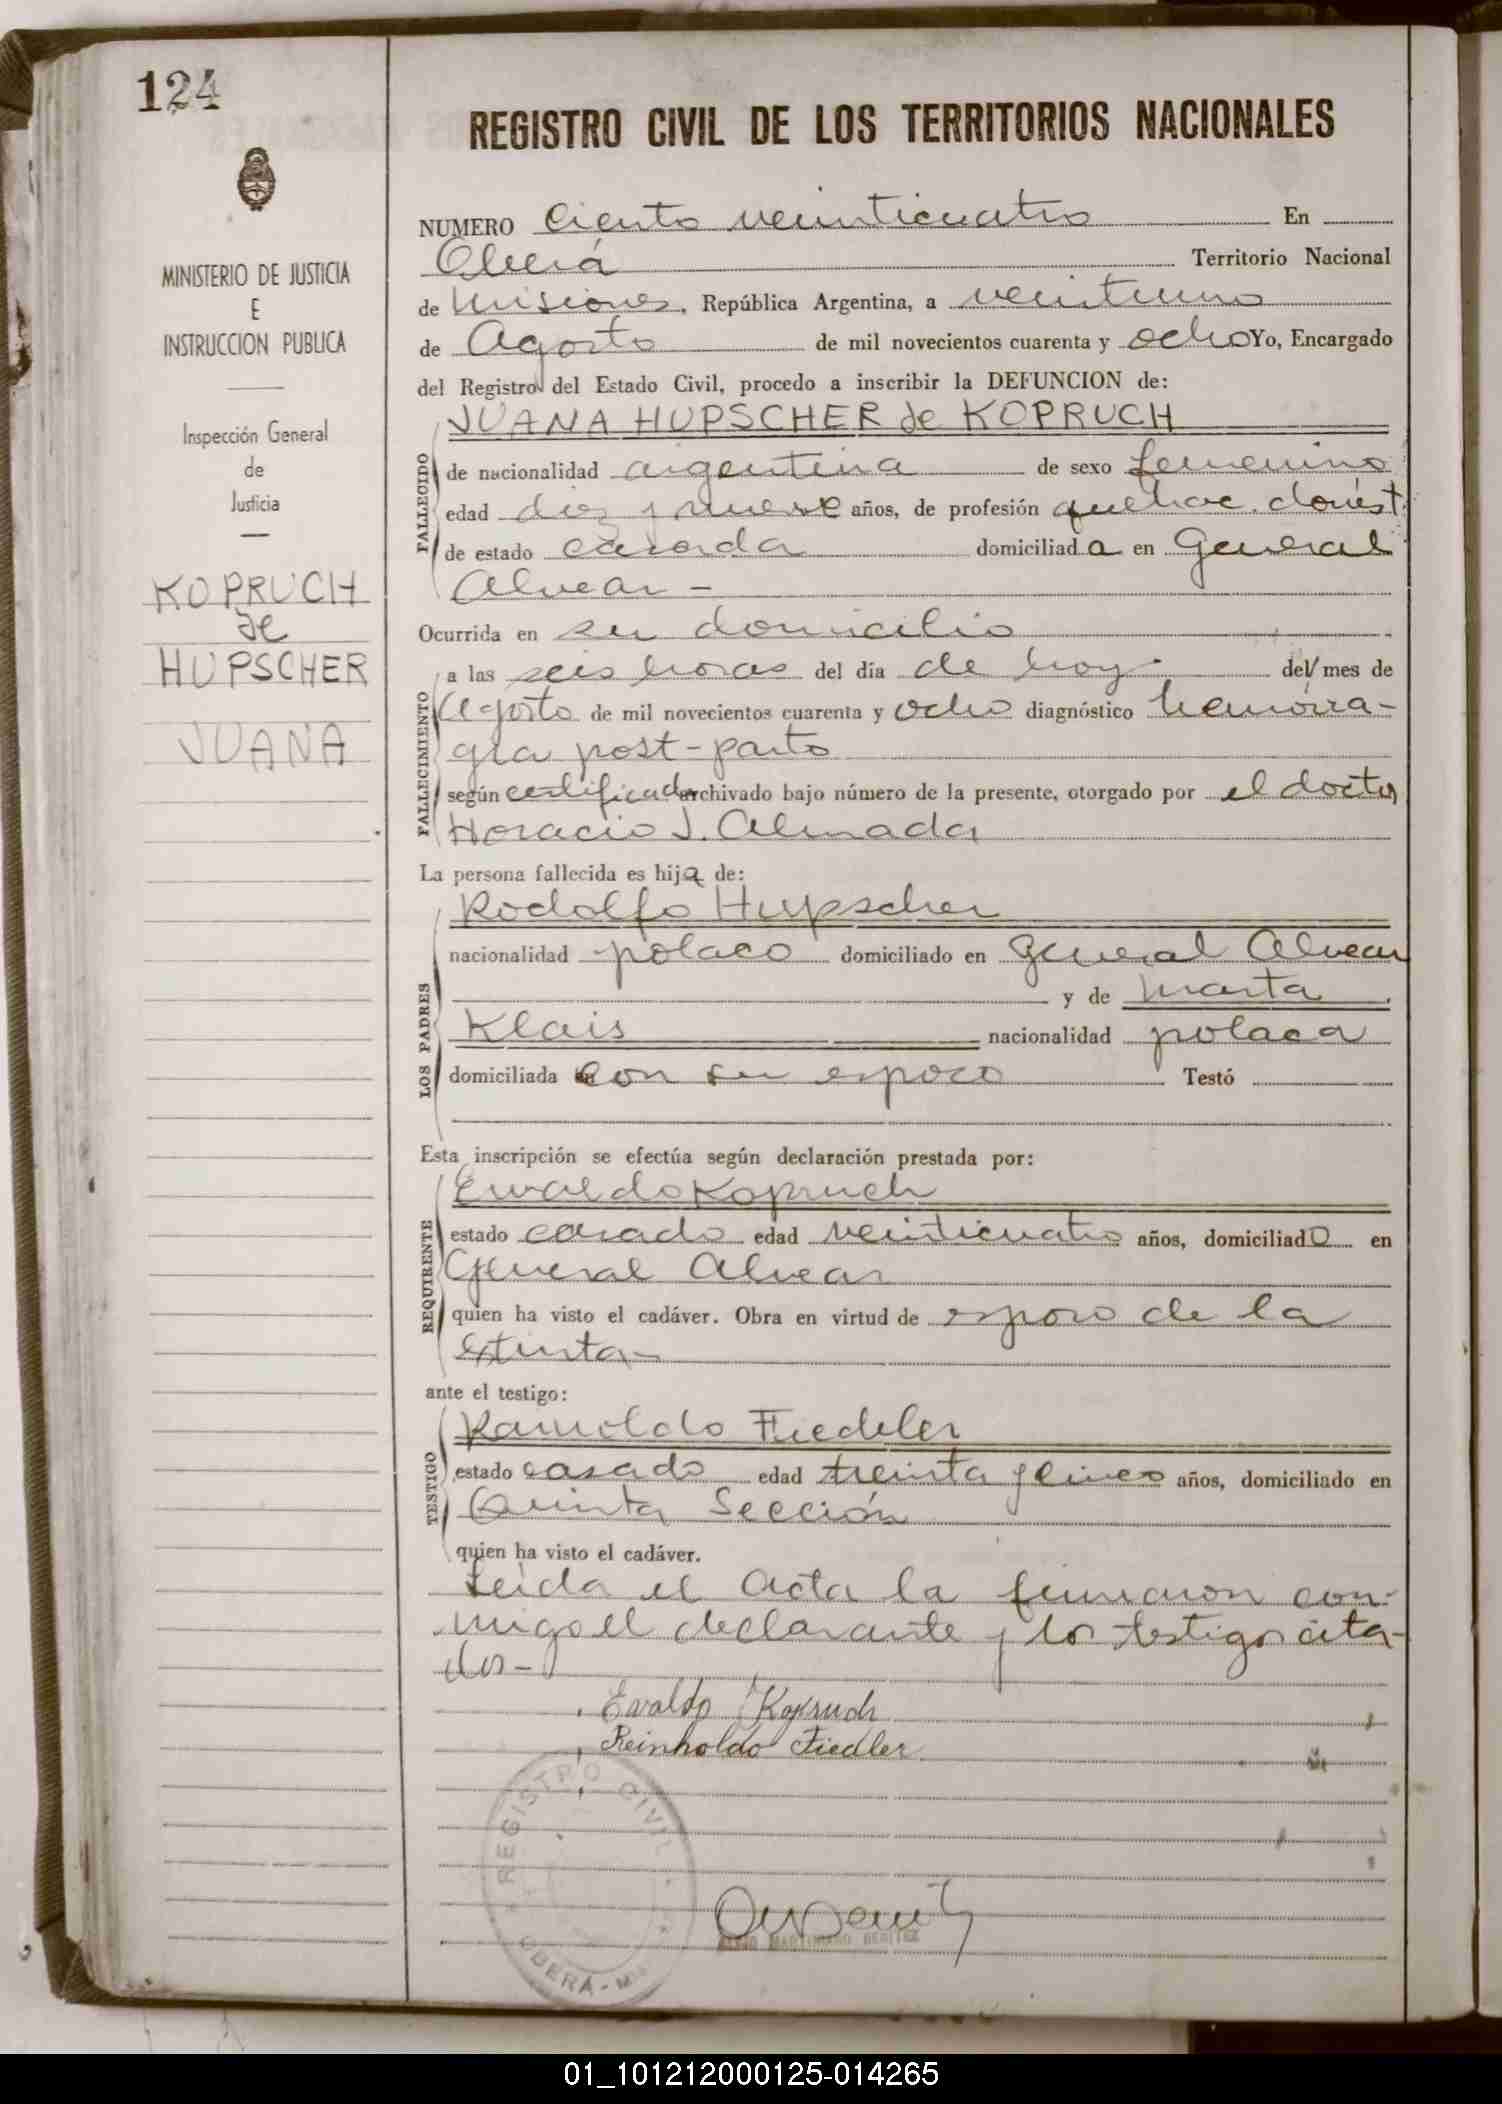 124
REGISTRO CIVIL DE LOS TERRITORIOS NACIONALES
MINISTERIO DE JUSTICIA
E
INSTRUCCION PUBLICA
Inspección General
de
Justicia
KOPRUCH
de
HUPSCHER
JUANA
NUMERO Ciento veinticuatro En
Oberá Territorio Nacional
de Misiones, República Argentina, a veintiuno
de Agosto de mil novecientos cuarenta y ocho Yo, Encargado
del Registro del Estado Civil, procedo a inscribir la DEFUNCION de:
JUANA HUPSCHER de KOPRUCH
FALLECIDO
de nacionalidad argentina de sexo femenino
edad diez y nueve años, de profesión quehac. domést.
de estado casada domiciliada en General
Alvear -
Ocurrida en su domicilio
FALLECIMIENTO
a las seis horas del día de hoy del mes de
Agosto de mil novecientos cuarenta y ocho diagnóstico hemorra-
gia post-parto
según certificado archivado bajo número de la presente, otorgado por el doctor
Horacio J. Almada
La persona fallecida es hija de:
LOS PADRES
Rodolfo Hupscher
nacionalidad polaco domiciliado en General Alvear
y de Marta
Klais nacionalidad polaca
domiciliada con su esposo Testó
Esta inscripción se efectúa según declaración prestada por:
REQUIRENTE
Ewaldo Kopruch
estado casado edad veinticuatro años, domiciliado en
General Alvear
quien ha visto el cadáver. Obra en virtud de esposo de la
extinta -
ante el testigo:
TESTIGO
Rainoldo Fiedler
estado casado edad treinta y cinco años, domiciliado en
Quinta Sección
quien ha visto el cadáver.
Leida el acta la firmaron con-
migo el declarante y los testigos cita-
dos -
Evaldo Kopruch
Reinholdo Fiedler
REGISTRO CIVIL
OBERÁ - Mnes
MARTINIANO BENITEZ
01_101212000125-014265